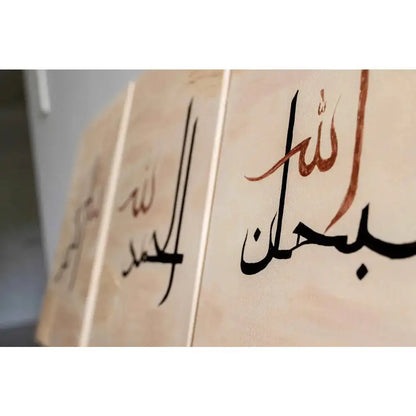 سبحان الله
الحمد لله